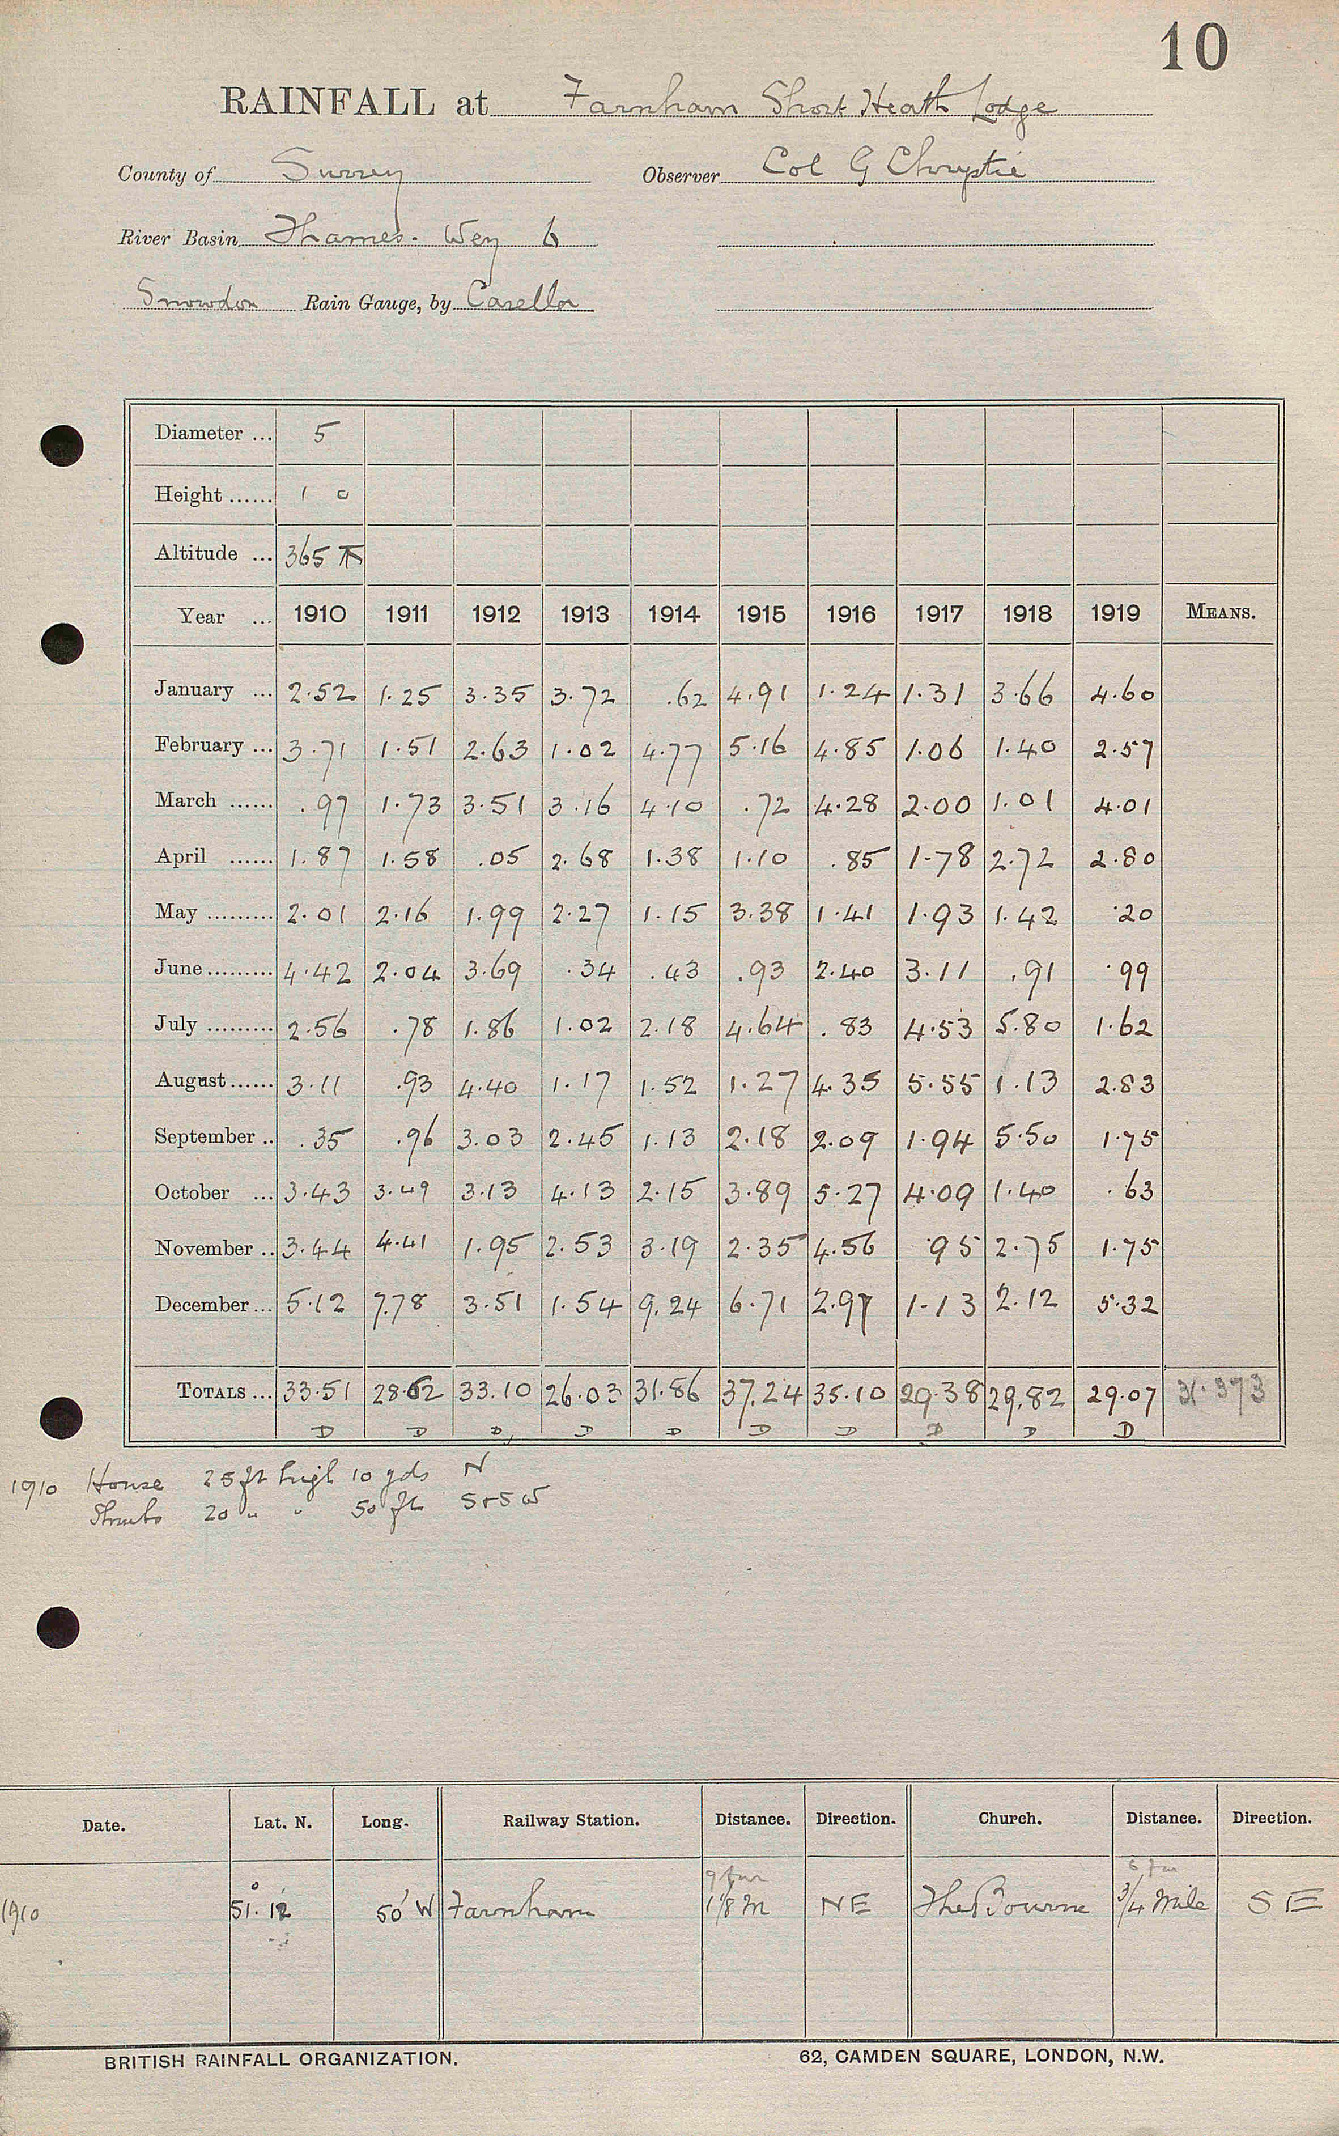 10
RAINFALL at Farnham Short Heath Lodge
County of Surrey Observer Col G Chrystie
River Basin Thames. Wey 6
Snowdon Rain Gauge, by Casella
Diameter ... 5
Height ...... 1 0
Altitude ... 365
Year ... 1910 1911 1912 1913 1914 1915 1916 1917 1918 1919 MEANS.
January ... 2.52 1.25 3.35 3.72 .62 4.91 1.24 1.31 3.66 4.60
February ... 3.71 1.51 2.63 1.02 4.77 5.16 4.85 1.06 1.40 2.57
March ...... .97 1.73 3.51 3.16 4.10 .72 4.28 2.00 1.01 4.01
April ...... 1.87 1.58 .05 2.68 1.38 1.10 .85 1.78 2.72 2.80
May ......... 2.01 2.16 1.99 2.27 1.15 3.38 1.41 1.93 1.42 .20
June ......... 4.42 2.04 3.69 .34 .43 .93 2.40 3.11 .91 .99
July ......... 2.56 .78 1.86 1.02 2.18 4.64 .83 4.53 5.80 1.62
August ...... 3.11 .93 4.40 1.17 1.52 1.27 4.35 5.55 1.13 2.83
September .. .35 .96 3.03 2.45 1.13 2.18 2.09 1.94 5.50 1.75
October ... 3.43 3.49 3.13 4.13 2.15 3.89 5.27 4.09 1.40 .63
November .. 3.44 4.41 1.95 2.53 3.19 2.35 4.56 .95 2.75 1.75
December ... 5.12 7.78 3.51 1.54 9.24 6.71 2.97 1.13 2.12 5.32
TOTALS ... 33.51 28.62 33.10 26.03 31.86 37.24 35.10 29.38 29.82 29.07 31.373
D D D D D D D D D D
1910 House 25 ft high 10 yds N
Shrubs 20 " " 50 ft S+SW
Date. Lat. N. Long. Railway Station. Distance. Direction. Church. Distance. Direction.
9 fur 6 fur
1910 51° 12' 50' W Farnham 1 1/8 m NE The Bourne 3/4 Mile S E
BRITISH RAINFALL ORGANIZATION. 62, CAMDEN SQUARE, LONDON, N.W.